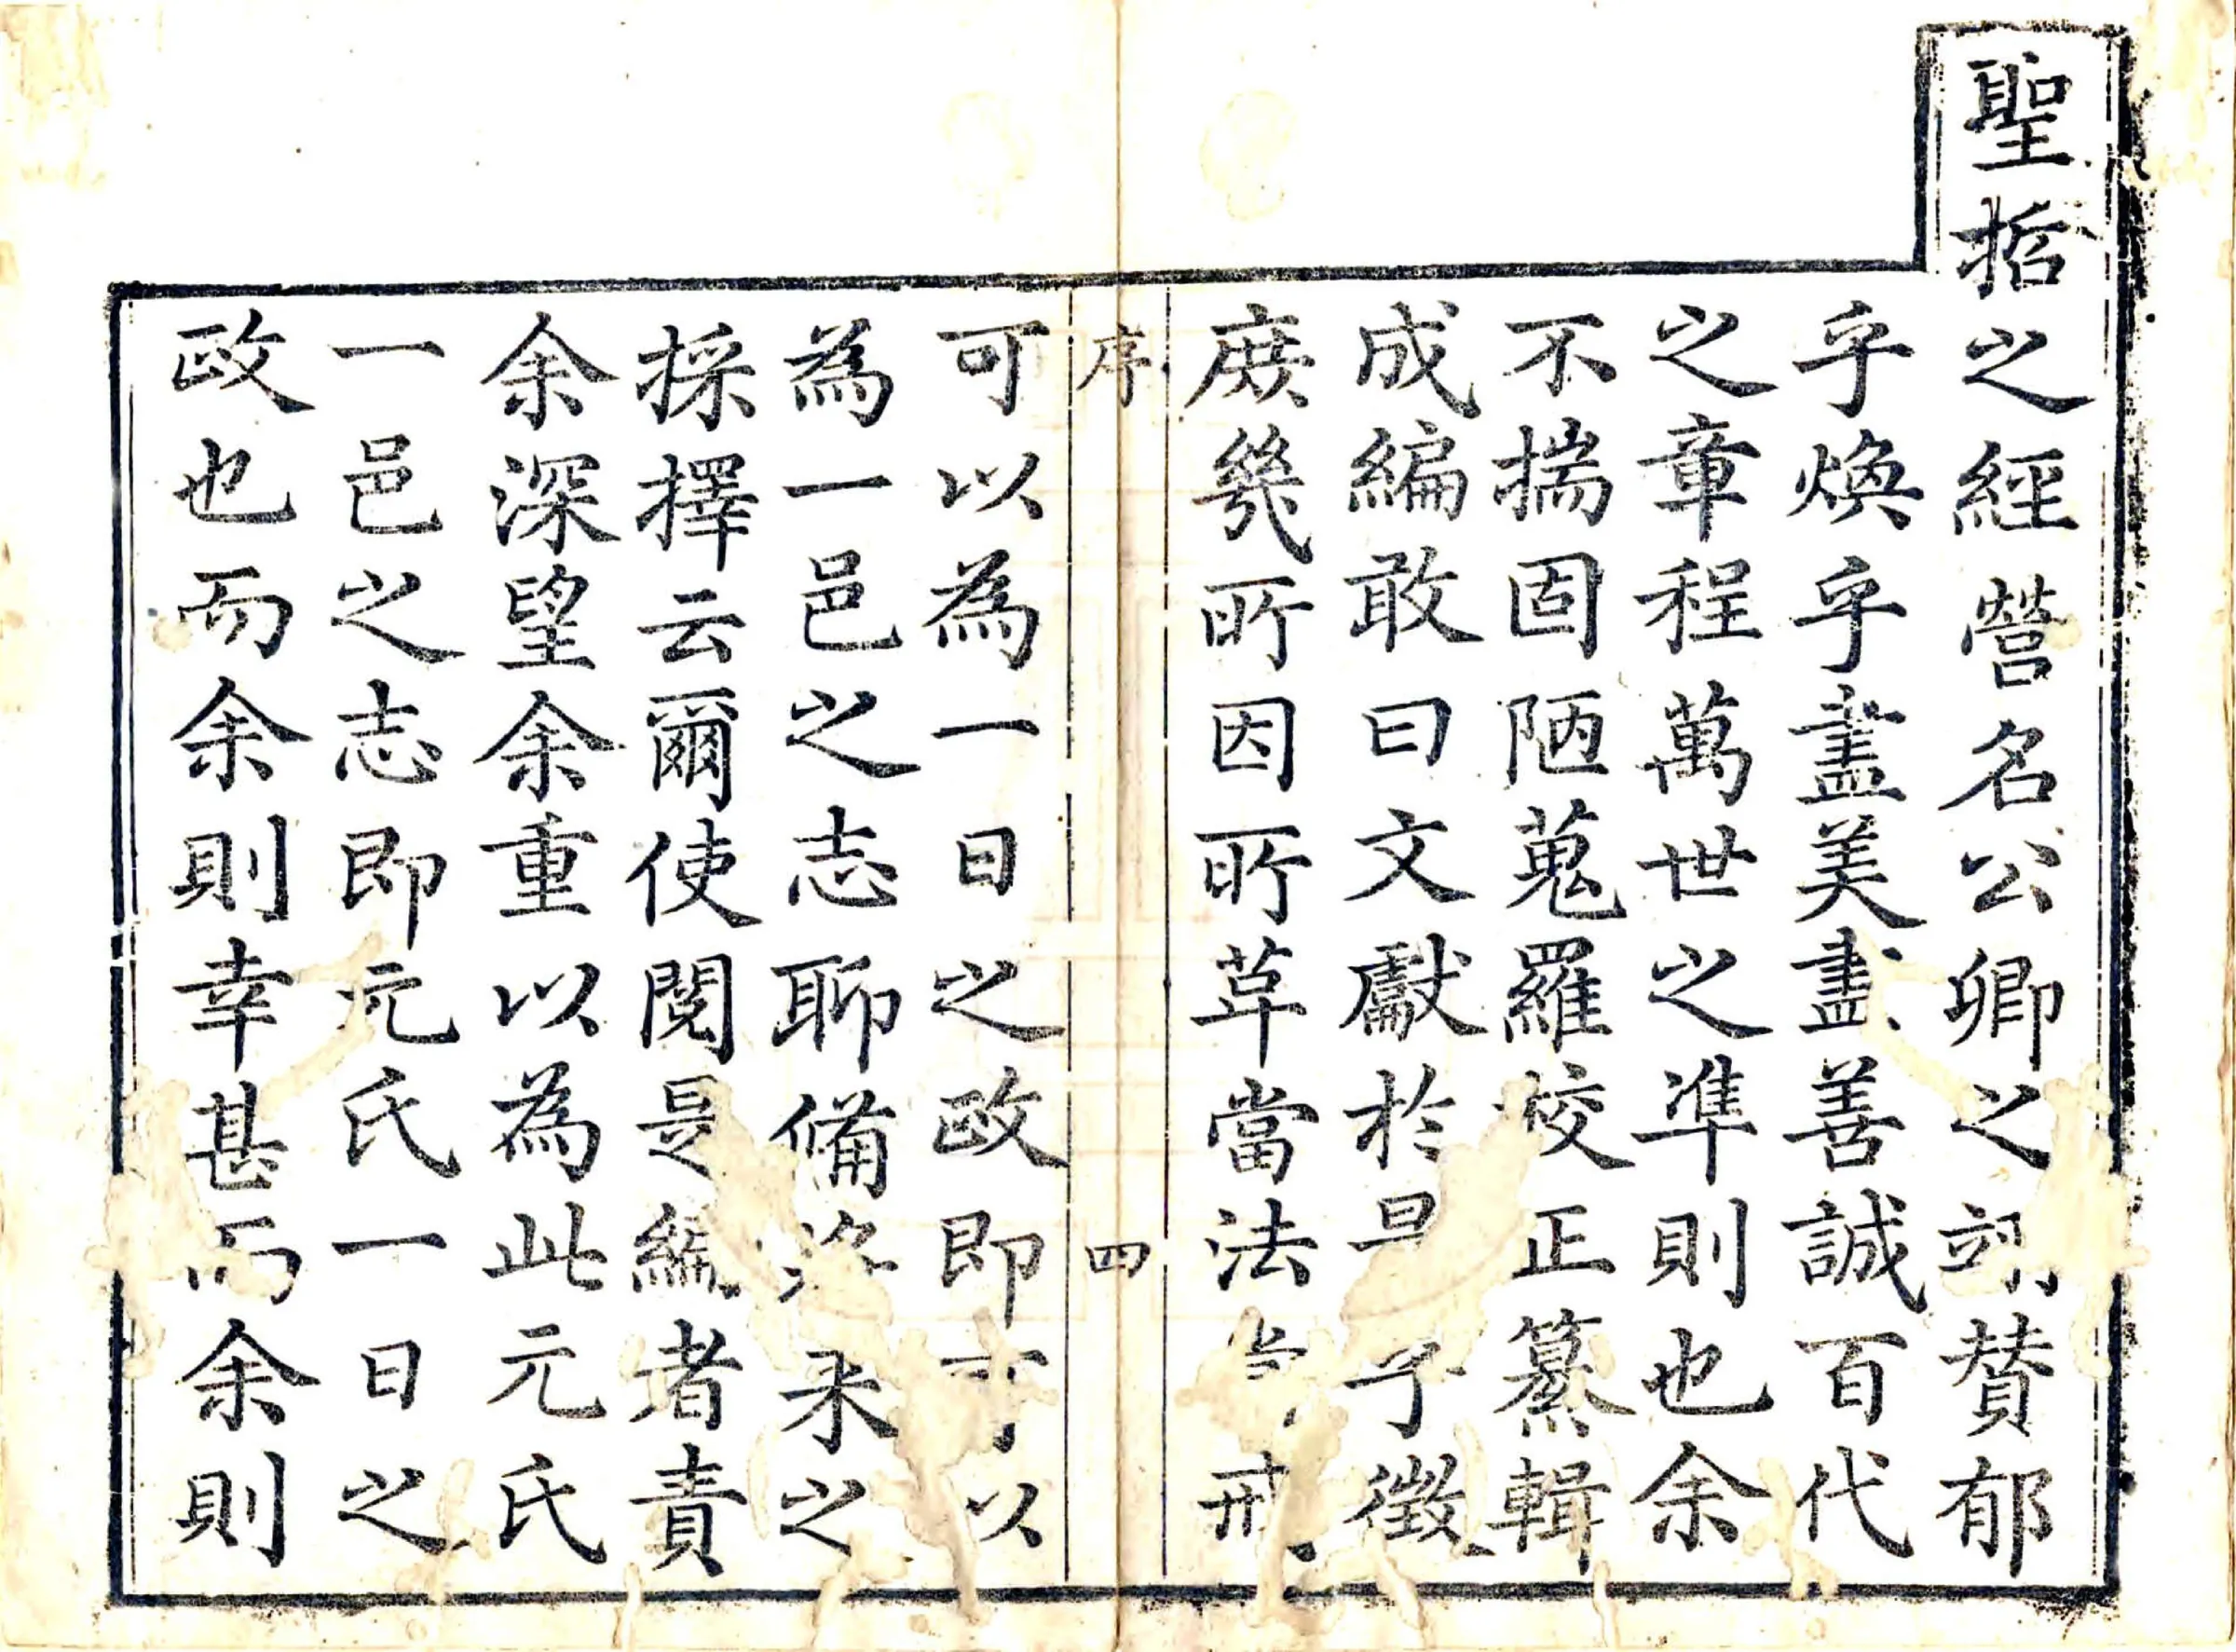 聖哲之經營名公卿之翊賛郁
乎煥乎盡美盡善誠百代
之章程萬世之準則也余
不揣固陋蒐羅校正纂輯
成編敢曰文獻於是乎徵
庶幾所因所革當法當戒
序 四
可以為一日之政即可以
為一邑之志聊備来之
採擇云爾使閱是編者責
余深望余重以為此元氏
一邑之志即元氏一日之
政也而余則幸甚而余則